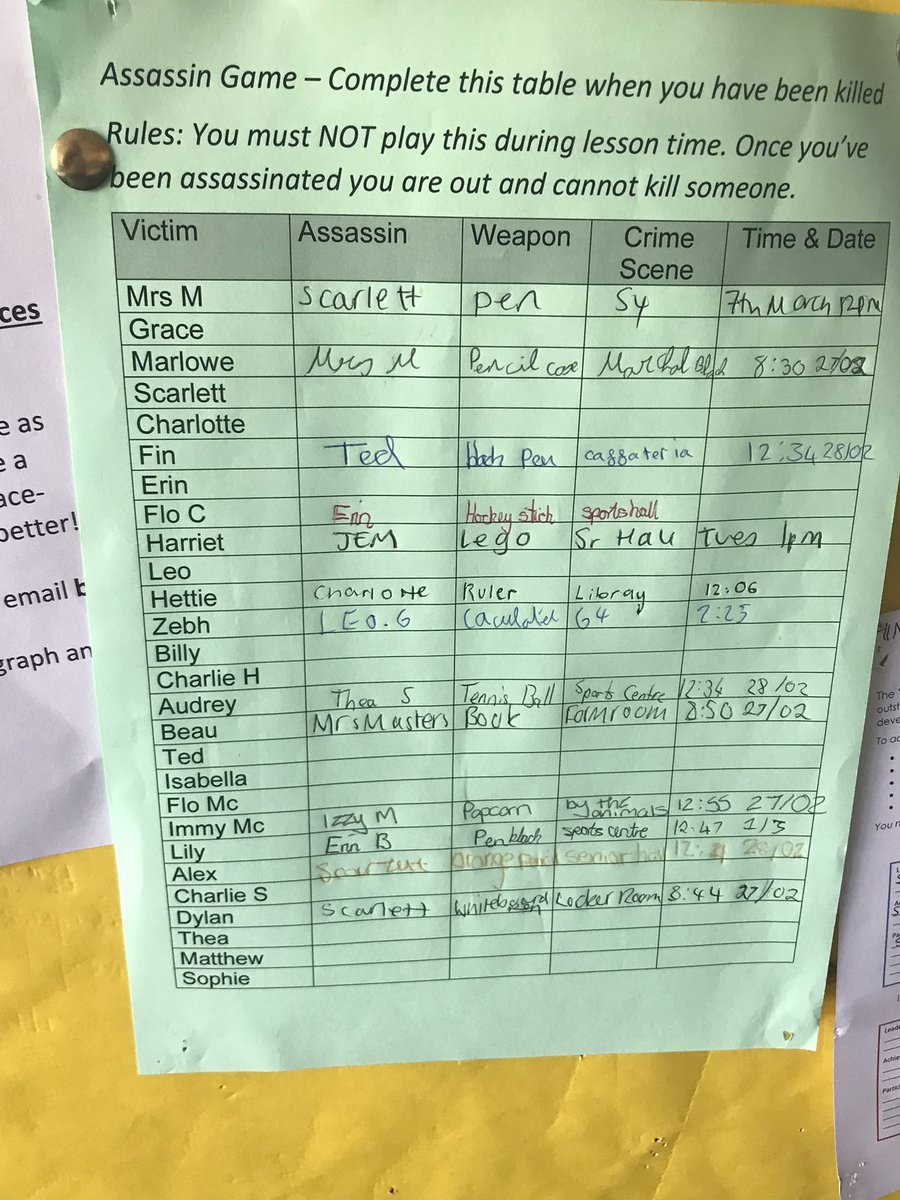 Assassin Game – Complete this table when you have been killed
Rules: You must NOT play this during lesson time. Once you've
been assassinated you are out and cannot kill someone.
Victim Assassin Weapon Crime Scene Time & Date
Mrs M Scarlett pen Sy 7th March 12pm
Grace
Marlowe Mrs M Pencil case 8:30 27/02
Scarlett
Charlotte
Fin Ted black Pen caffateria 12:34 28/02
Erin
Flo C Erin Hockey stick sportshall
Harriet JEM Lego Sr Hall Tues 1pm
Leo
Hettie Charlotte Ruler Libray 12:06
Zebh LEO.G 64 2:25
Billy
Charlie H
Audrey Thea S Tennis Ball Sports Centre 12:34 28/02
Beau Mrs Masters Book Formroom 8:50 27/02
Ted
Isabella
Flo Mc
Immy Mc Izzy M Popcorn by the animals 12:55 27/02
Lily Erin B Pen black sports centre 12:47 1/3
Alex
Charlie S
Dylan Scarlett Whiteboard Locker Room 8:44 27/02
Thea
Matthew
Sophie
ces
e as
e a
ace-
better!
email b
graph an
The
outst
deve
To ac
You n
Leade
Achie
Partic